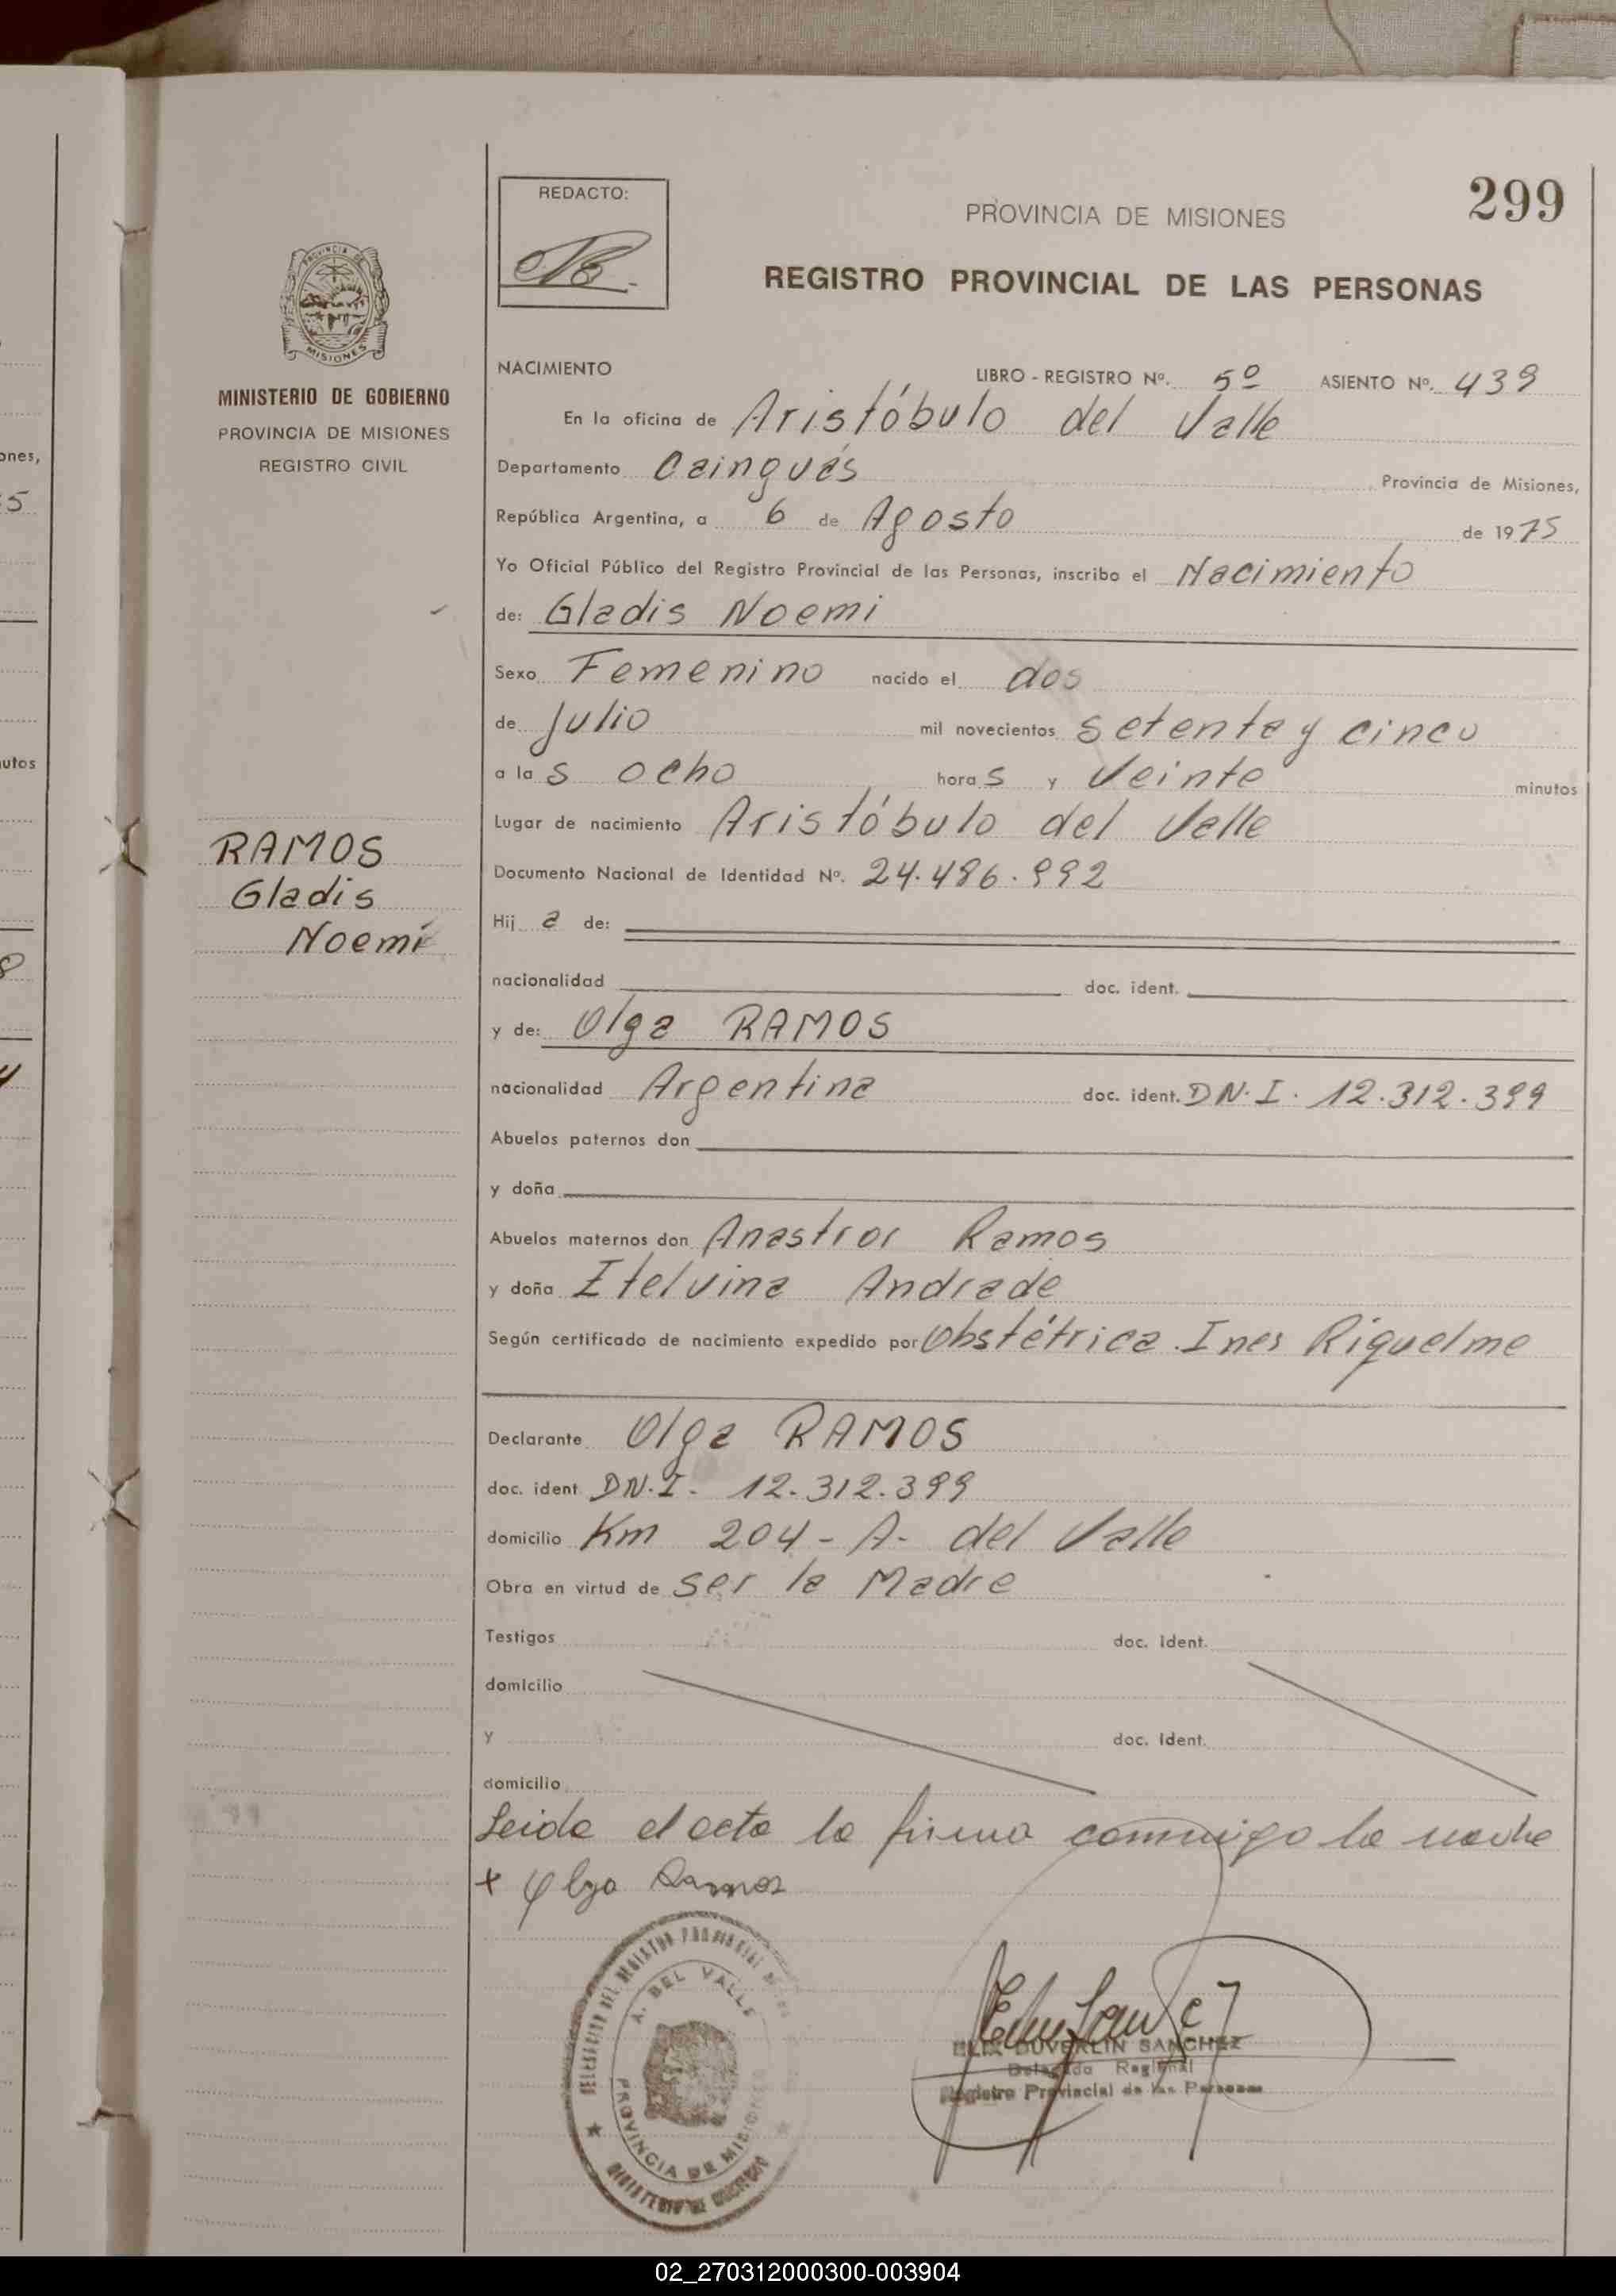 REDACTO:
PROVINCIA DE MISIONES
299
REGISTRO PROVINCIAL DE LAS PERSONAS
PROVINCIA DE
MISIONES
MINISTERIO DE GOBIERNO
PROVINCIA DE MISIONES
REGISTRO CIVIL
RAMOS
Gladis
Noemí
NACIMIENTO LIBRO - REGISTRO Nº. 5º ASIENTO Nº. 439
En la oficina de Aristóbulo del Valle
Departamento Cainguás Provincia de Misiones,
República Argentina, a 6 de Agosto de 1975
Yo Oficial Público del Registro Provincial de las Personas, inscribo el Nacimiento
de: Gladis Noemi
Sexo Femenino nacido el dos
de Julio mil novecientos setenta y cinco
a las ocho horas y veinte minutos
Lugar de nacimiento Aristóbulo del Valle
Documento Nacional de Identidad Nº. 24.486.992
Hija de:
nacionalidad doc. ident.
y de: Olga RAMOS
nacionalidad Argentina doc. ident. DN.I. 12.312.399
Abuelos paternos don
y doña
Abuelos maternos don Ramos
y doña Itelvina Andrade
Según certificado de nacimiento expedido por Obstétrica Ines Riquelme
Declarante Olga RAMOS
doc. ident DN.I. 12.312.399
domicilio Km 204 - A. del Valle
Obra en virtud de ser la Madre
Testigos doc. ident.
domicilio
y doc. ident.
domicilio
Leida el acta la firma conmigo la madre
+ Olga Ramos
DELEGACION DEL REGISTRO PROVINCIAL
A. DEL VALLE
PROVINCIA DE MISIONES
MINISTERIO DE GOBIERNO
DUVERLIN SANCHEZ
Delegado Regional
Registro Provincial de las Personas
ones,
5
utos
02_270312000300-003904